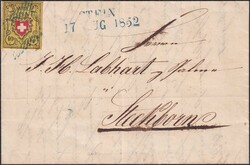 STEIN
17 AUG 1852
Herrn
J. H. Labhart
Steckborn